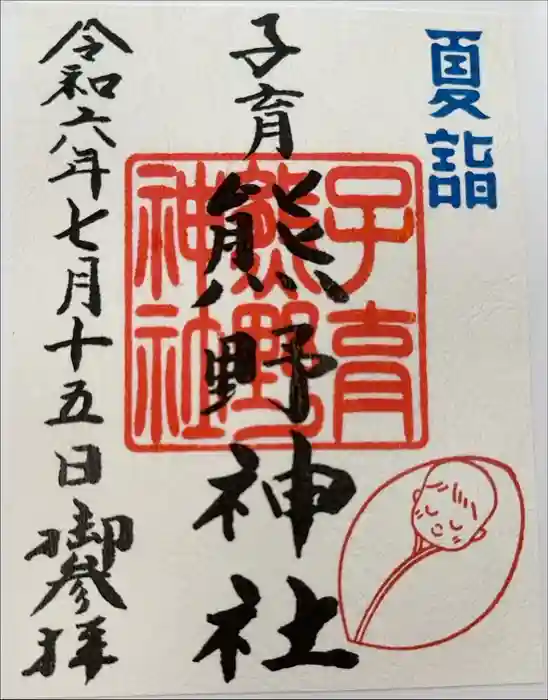 夏詣
子育熊野神社
子育
熊野
神社
令和六年七月十五日御參拝